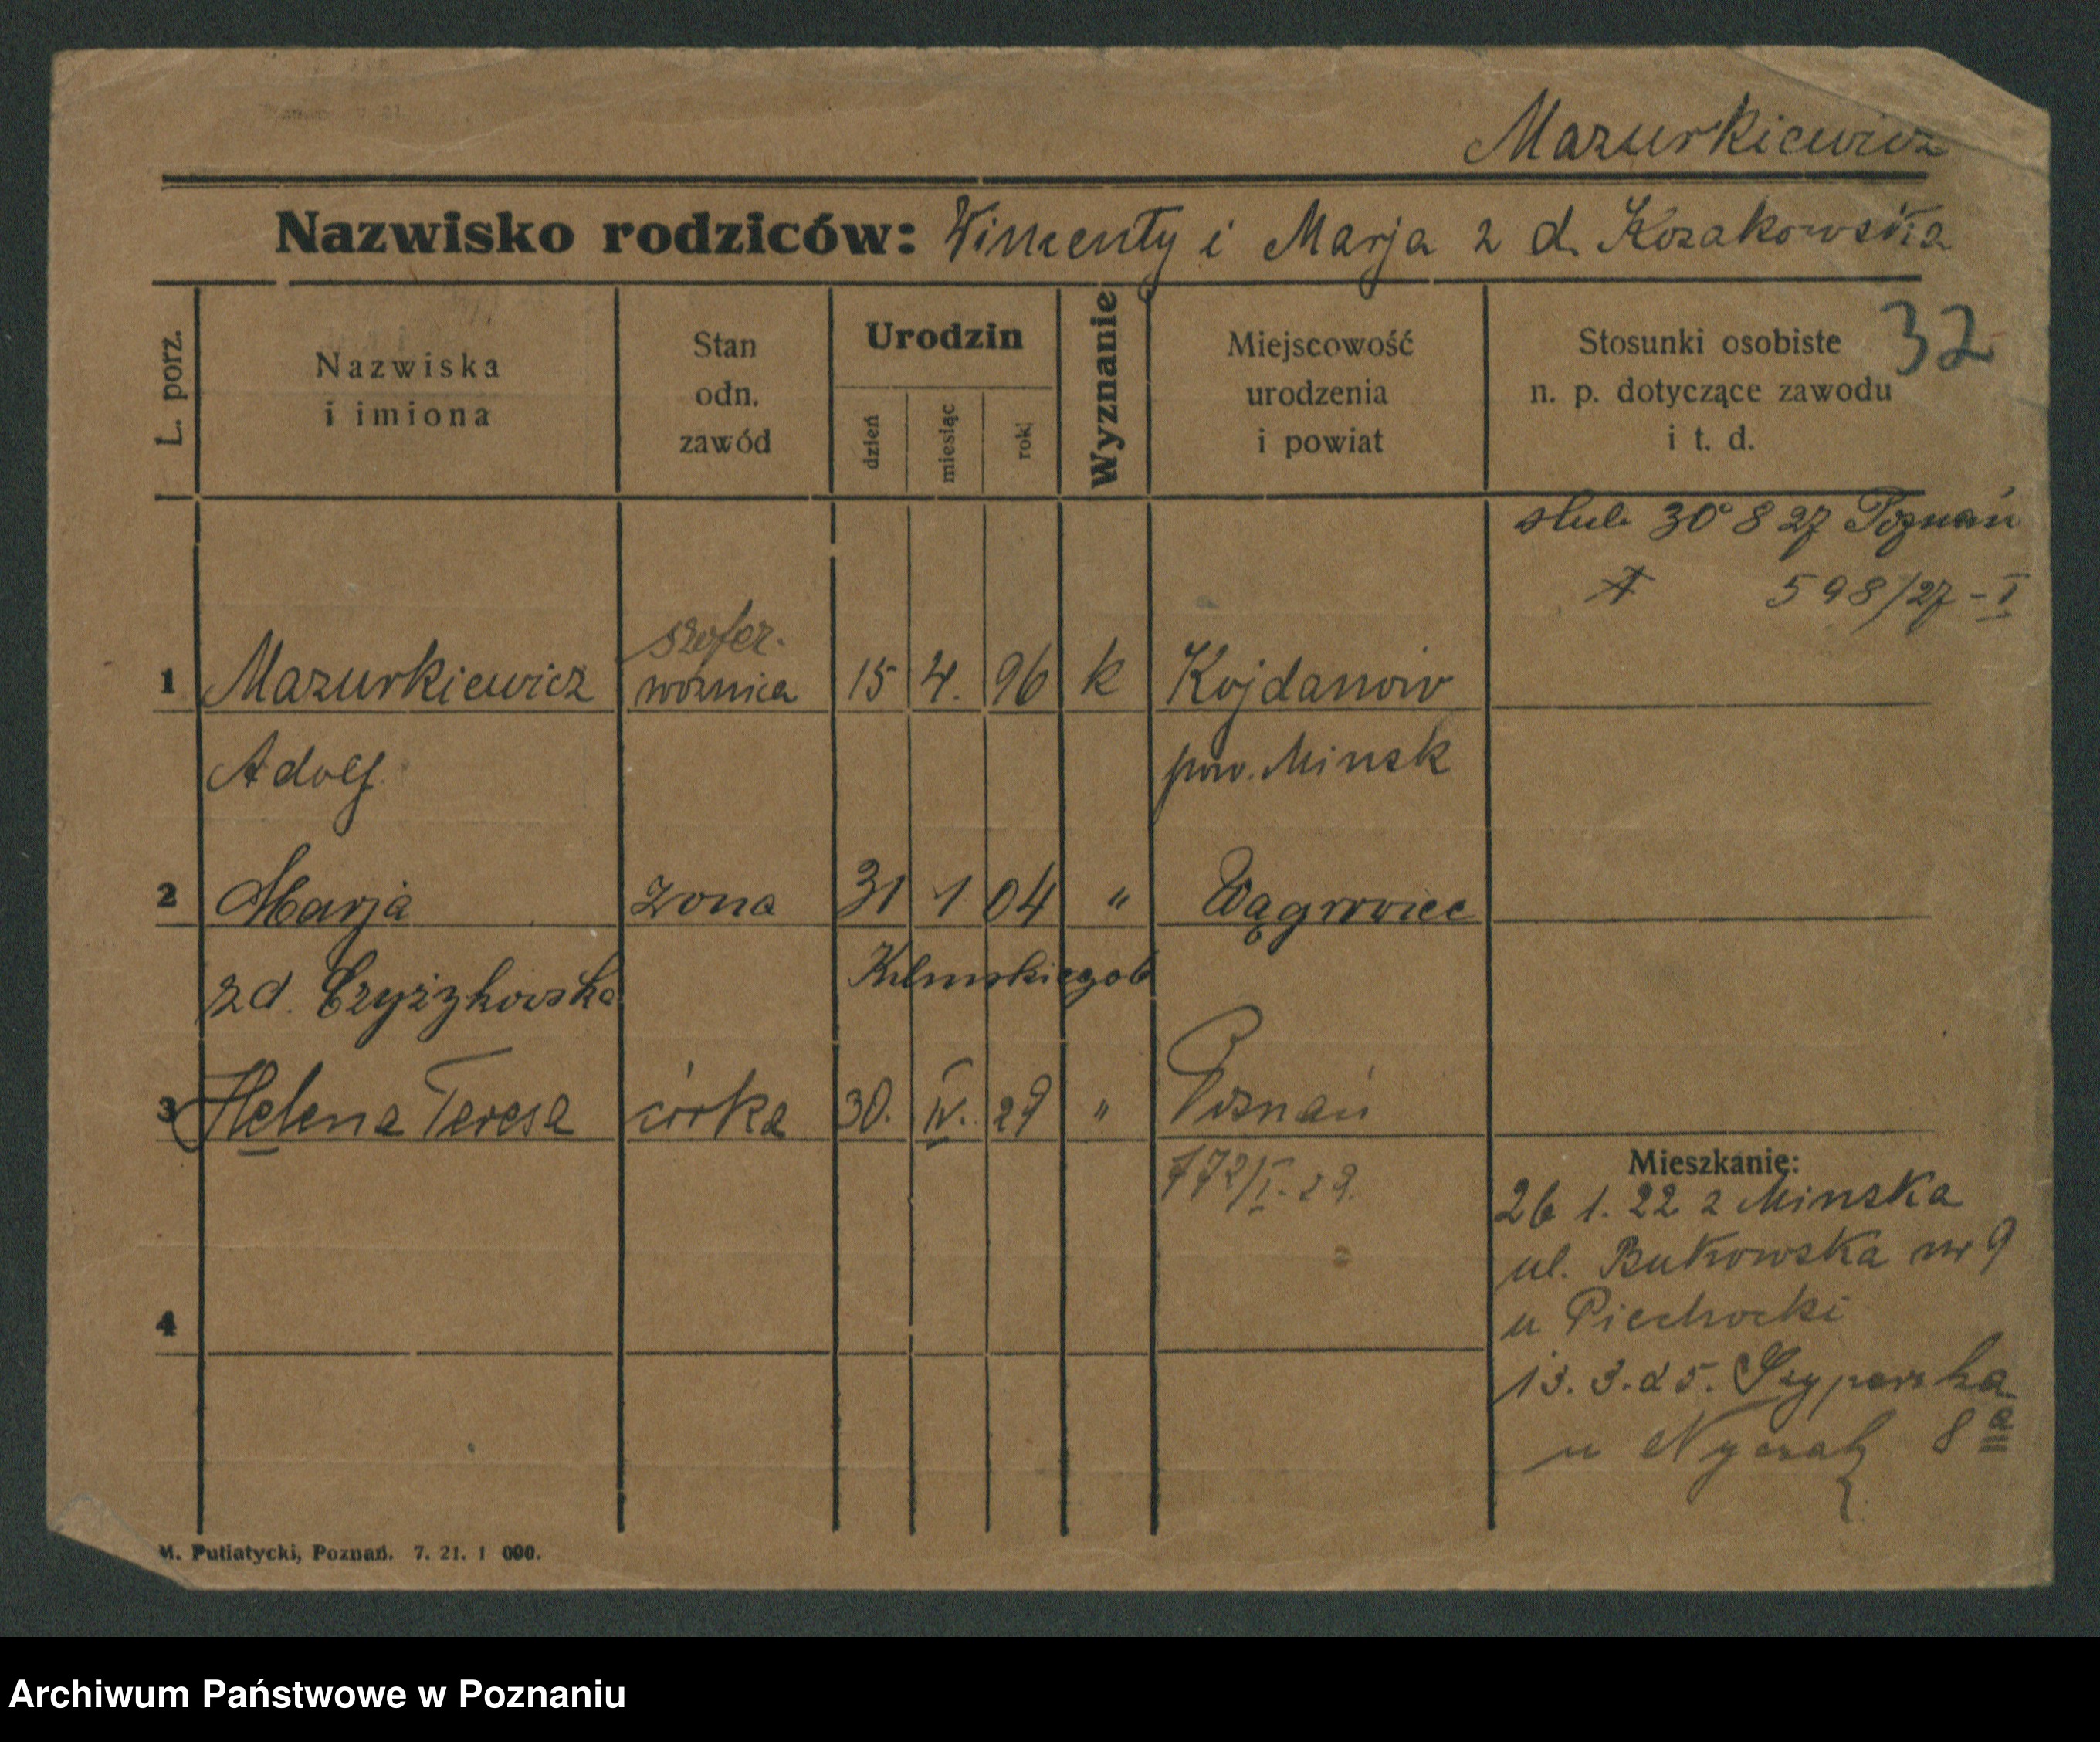 Mazurkiewicz
Nazwisko rodziców: Wincenty i Marja z d. Kozakowska
32
L. porz.
Nazwiska
i imiona
Stan
odn.
zawód
Urodzin
dzień
miesiąc
rok
Wyznanie
Miejscowość
urodzenia
i powiat
Stosunki osobiste
n. p. dotyczące zawodu
i t. d.
ślub 30 8 27 Poznań
598/27-I
szofer.
1 Mazurkiewicz woźnica 15 4. 96 k Kojdanow
Adolf pow. Minsk
2 Marja żona 31 1 04 " Wągrowiec
z d. Czyżykowska
3 Helena Teresa córka 30. IV. 29 " Poznań
772/I.29.
Mieszkanie:
26 1. 22 z Minska
ul. Bukowska nr 9
u Piechocki
13. 3. 25.
u 8a
4
M. Putiatycki, Poznań. 7. 21. 1 000.
Archiwum Państwowe w Poznaniu